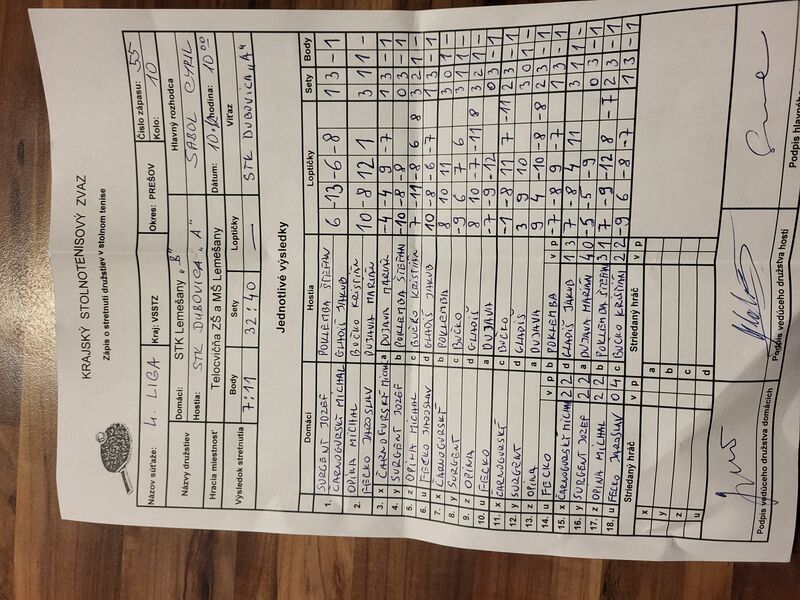 KRAJSKÝ STOLNOTENISOVÝ ZVAZ
Zápis o stretnutí družstiev v stolnom tenise
Názov súťaže: 4. LIGA Kraj: VSSTZ Okres: PREŠOV Číslo zápasu: 55
Kolo: 10
Názvy družstiev Domáci: STK Lemešany „B" Hlavný rozhodca
Hostia: STK DUBOVICA „A" SABOL CYRIL
Hracia miestnosť Telocvičňa ZŠ a MŠ Lemešany Dátum: Hodina: 10 00
Výsledok stretnutia Body Sety Loptičky Víťaz
7:11 32:40 — STK DUBOVICA „A"
Jednotlivé výsledky
Domáci Hostia Loptičky Sety Body
1. SURGENT JOZEF POKLEMBA ŠTEFAN 6 -13 -6 -8 1 3 -1
ČARNOGURSKÝ MICHAL GLADIŠ JAKUB
2. OPINA MICHAL BUČKO KRISTIÁN 10 -8 12 1 3 1 1 -
FECKO JAROSLAV DUJAVA MARIÁN
3. x ČARNOGURSKÝ MICHAL a DUJAVA MARIÁN -4 -4 9 -7 1 3 -1
4. y SURGENT JOZEF b POKLEMBA ŠTEFAN -10 -8 -8 0 3 -1
5. z OPINA MICHAL c BUČKO KRISTIÁN 7 -11 -8 6 8 3 2 1 -
6. u FECKO JAROSLAV d GLADIŠ JAKUB 10 -8 -6 -7 1 3 -1
7. x ČARNOGURSKÝ b POKLEMBA 8 10 11 3 0 1 -
8. y SURGENT c BUČKO -9 6 7 6 3 1 1 -
9. z OPINA d GLADIŠ 8 10 -7 -11 8 3 2 1 -
10. u FECKO a DUJAVA -7 -9 -12 0 3 -1
11. x ČARNOGURSKÝ c BUČKO -1 -8 11 7 -11 2 3 -1
12. y SURGENT d GLADIŠ 3 9 10 3 0 1 -
13. z OPINA a DUJAVA 9 4 -10 -8 -8 2 3 -1
14. u FECKO b POKLEMBA -7 -8 9 -7 1 3 -1
v p v p
15. x ČARNOGURSKÝ MICHAL 2 2 d GLADIŠ JAKUB 1 3 7 -8 4 11 3 1 1 -
16. y SURGENT JOZEF 2 2 a DUJAVA MARIÁN 4 0 -5 -5 -9 0 3 -1
17. z OPINA MICHAL 2 2 b POKLEMBA ŠTEFAN 3 1 7 -9 -12 8 -7 2 3 -1
18. u FECKO JAROSLAV 0 4 c BUČKO KRISTIÁN 2 2 -9 6 -8 -7 1 3 -1
Striedaný hráč v p Striedaný hráč v p
x a
y b
z c
u d
Podpis vedúceho družstva domácich Podpis vedúceho družstva hostí Podpis hlavného